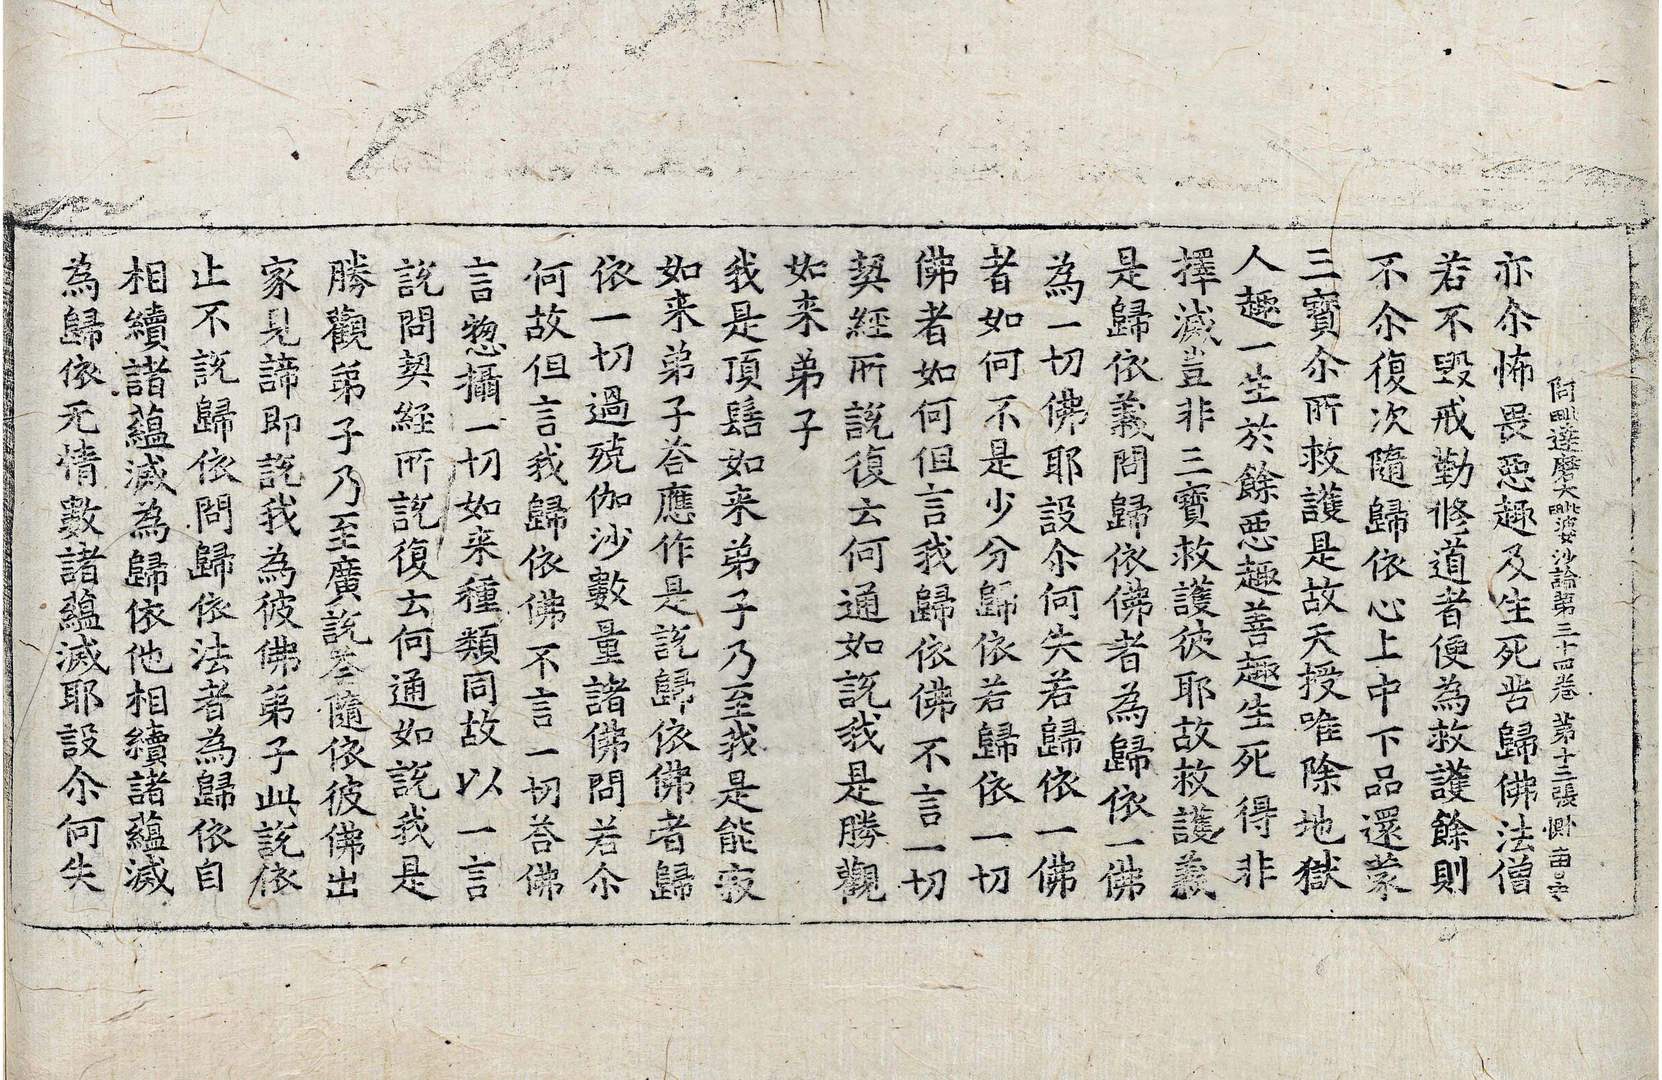 阿毗達磨大毗婆沙論第三十四卷 第十三張 惻
亦尒怖畏惡趣及生死苦歸佛法僧
若不毀戒勤修道者便為救護餘則
不尒復次隨歸依心上中下品還蒙
三寶尒所救護是故天授唯除地獄
人趣一生於餘惡趣善趣生死得非
擇滅豈非三寶救護彼耶故救護義
是歸依義問歸依佛者為歸依一佛
為一切佛耶設尒何失若歸依一佛
者如何不是少分歸依若歸依一切
佛者如何但言我歸依佛不言一切
契經所說復云何通如說我是勝觀
如来弟子
我是頂髻如来弟子乃至我是能寂
如来弟子荅應作是說歸依佛者歸
依一切過殑伽沙數量諸佛問若尒
何故但言我歸依佛不言一切荅佛
言惣攝一切如来種類同故以一言
說問契經所說復云何通如說我是
勝觀弟子乃至廣說荅隨依彼佛出
家見諦即說我為彼佛弟子此說依
止不說歸依問歸依法者為歸依自
相續諸蘊滅為歸依他相續諸蘊滅
為歸依无情數諸蘊滅耶設尒何失